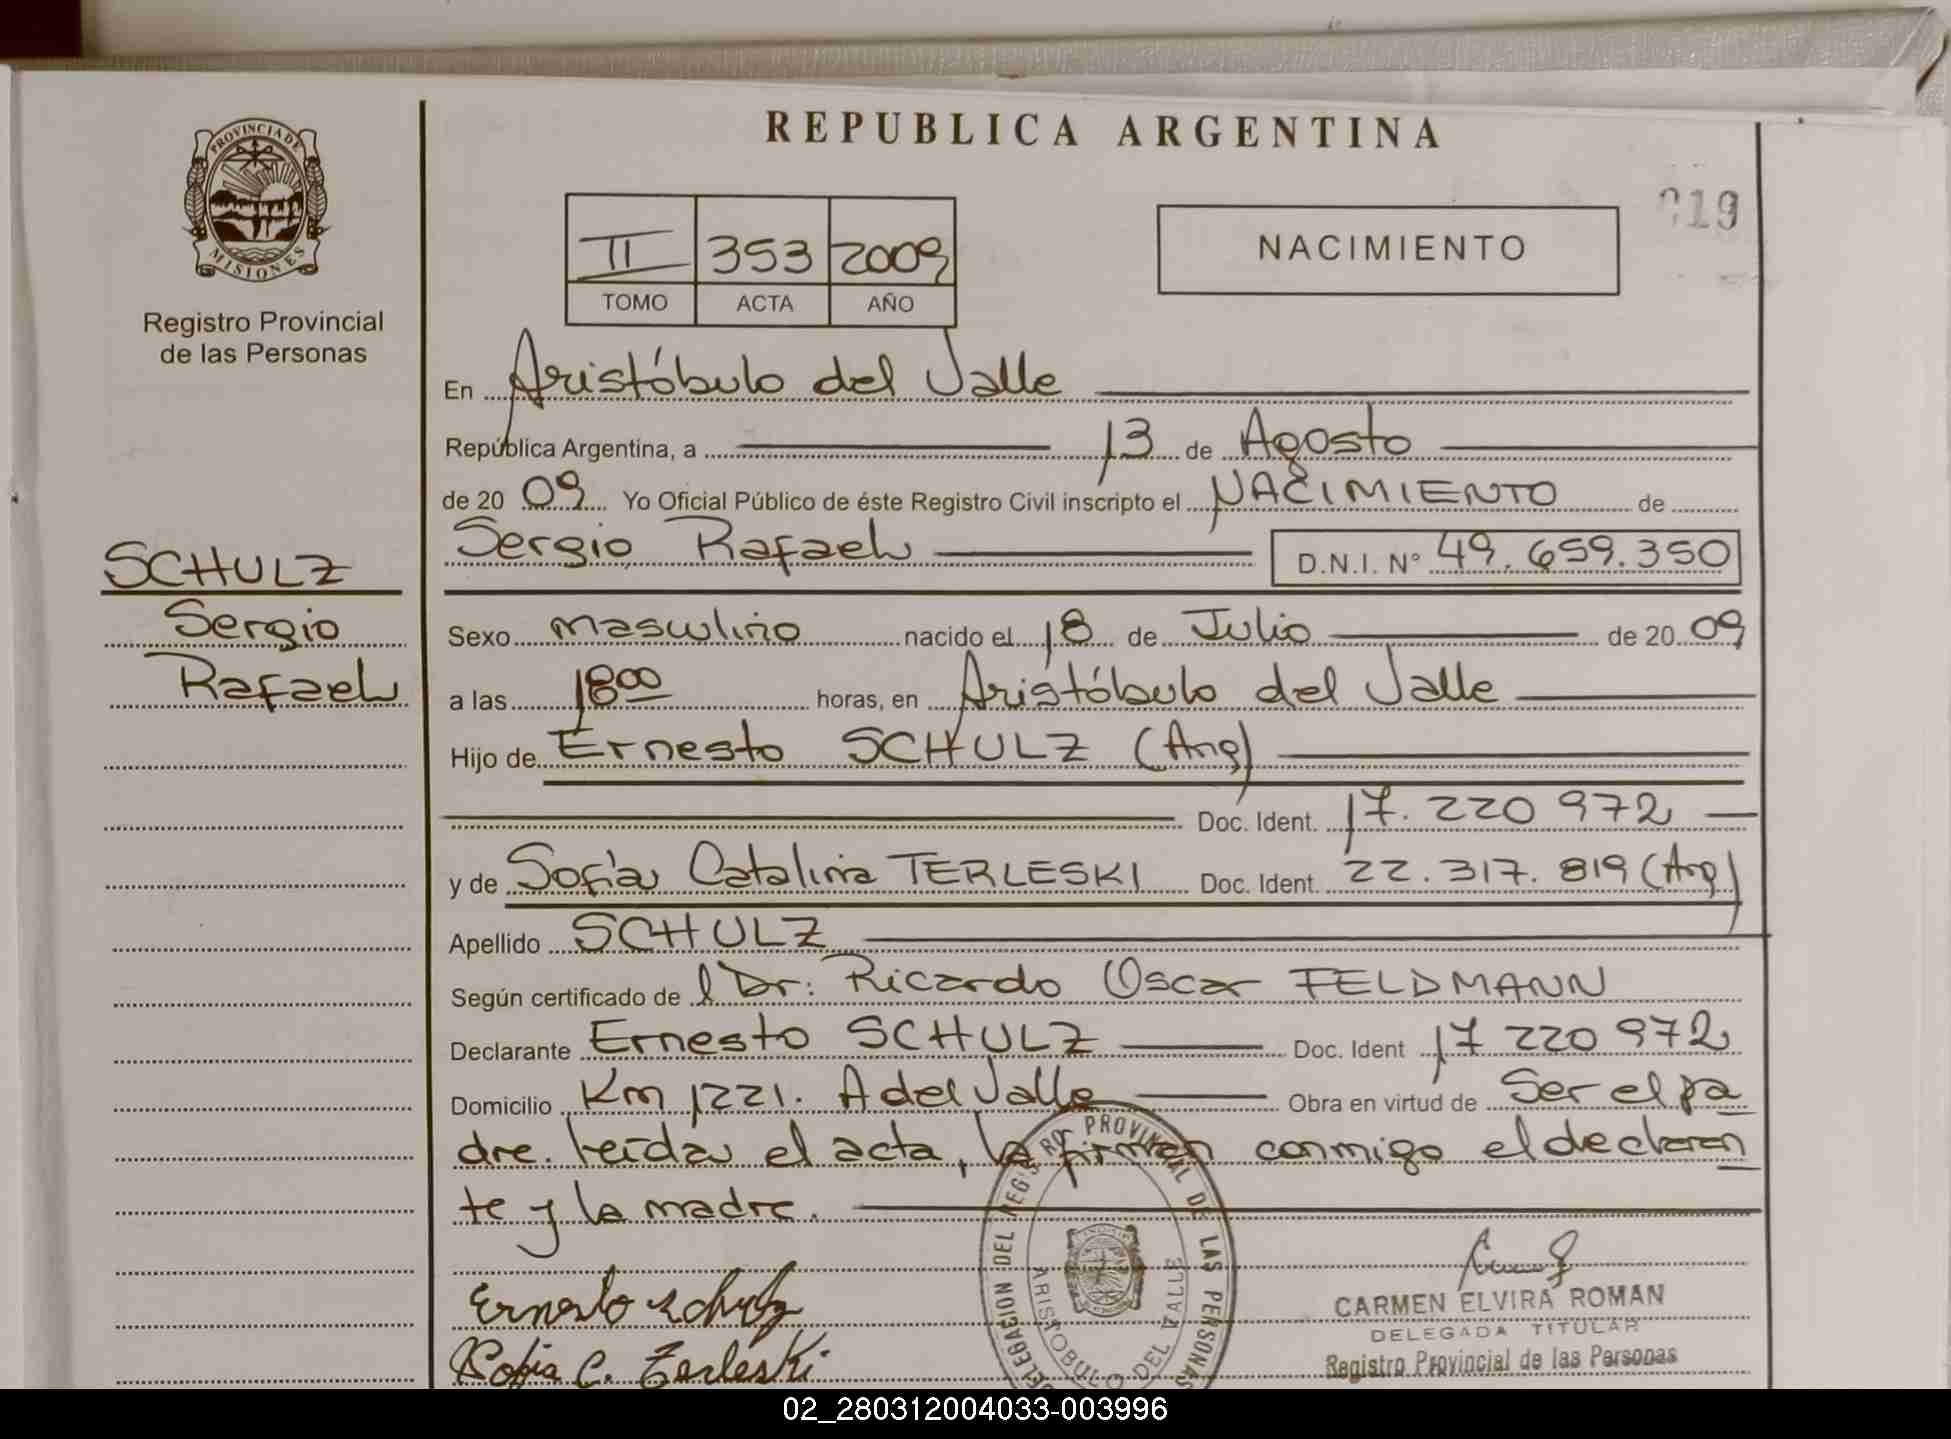 REPUBLICA ARGENTINA
PROVINCIA DE
MISIONES
Registro Provincial
de las Personas
II 353 2009
TOMO ACTA AÑO
NACIMIENTO
019
En Aristóbulo del Valle
República Argentina, a 13 de Agosto
de 20 09 Yo Oficial Público de éste Registro Civil inscripto el NACIMIENTO de
Sergio Rafael D.N.I. Nº 49.659.350
SCHULZ
Sergio
Rafael
Sexo masculino nacido el 18 de Julio de 20 09
a las 18 00 horas, en Aristóbulo del Valle
Hijo de Ernesto SCHULZ (Arg)
Doc. Ident. 17.220 972
y de Sofía Catalina TERLESKI Doc. Ident. 22.317.819 (Arg)
Apellido SCHULZ
Según certificado de l Dr: Ricardo Oscar FELDMANN
Declarante Ernesto SCHULZ Doc. Ident 17 220 972
Domicilio Km 1221. A del Valle Obra en virtud de Ser el pa
dre. Leída el acta, la firman conmigo el declaran
te y la madre.
Ernesto Schulz
Sofia C. Terleski
DELEGACION DEL REGISTRO PROVINCIAL DE LAS PERSONAS
ARISTOBULO DEL VALLE
CARMEN ELVIRA ROMAN
DELEGADA TITULAR
Registro Provincial de las Personas
02_280312004033-003996